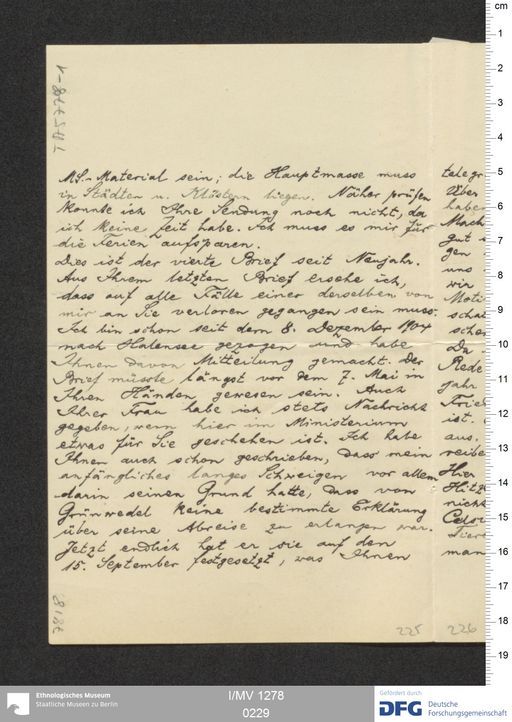 MS.-Material sein; die Hauptmasse muss
in Städten u. Klöstern liegen. Näher prüfen
konnte ich Ihre Sendung noch nicht, da
ich keine Zeit habe. Ich muss es mir für
die Ferien aufsparen.
Dies ist der vierte Brief seit Neujahr.
Aus Ihrem letzten Brief ersehe ich,
dass auf alle Fälle einer derselben von
mir an Sie verloren gegangen sein muss.
Ich bin schon seit dem 8. Dezember 1904
nach Halensee gezogen und habe
Ihnen davon Mitteilung gemacht. Der
Brief müsste längst vor dem 7. Mai in
Ihren Händen gewesen sein. Auch
Ihrer Frau habe ich stets Nachricht
gegeben, wenn hier im Ministerium
etwas für Sie geschehen ist. Ich habe
Ihnen auch schon geschrieben, dass mein
anfängliches langes Schweigen vor allem
darin seinen Grund hatte, dass von
Grünwedel keine bestimmte Erklärung
über seine Abreise zu erlangen war.
Jetzt endlich hat er sie auf den
15. September festgesetzt, was Ihnen
225
telegr
Über
haben
Mach
gut
gen
uns
wir
Moti
schaf
schen
Da
Rede
jahr
Frieh
ist.
aus,
reibe
Hier
Hitz
nicht
Celsi
Tiere
man
226
cm
1
2
3
4
5
6
7
8
9
10
11
12
13
14
15
16
17
18
19
Ethnologisches Museum
Staatliche Museen zu Berlin
I/MV 1278
0229
Gefördert durch
DFG Deutsche
Forschungsgemeinschaft